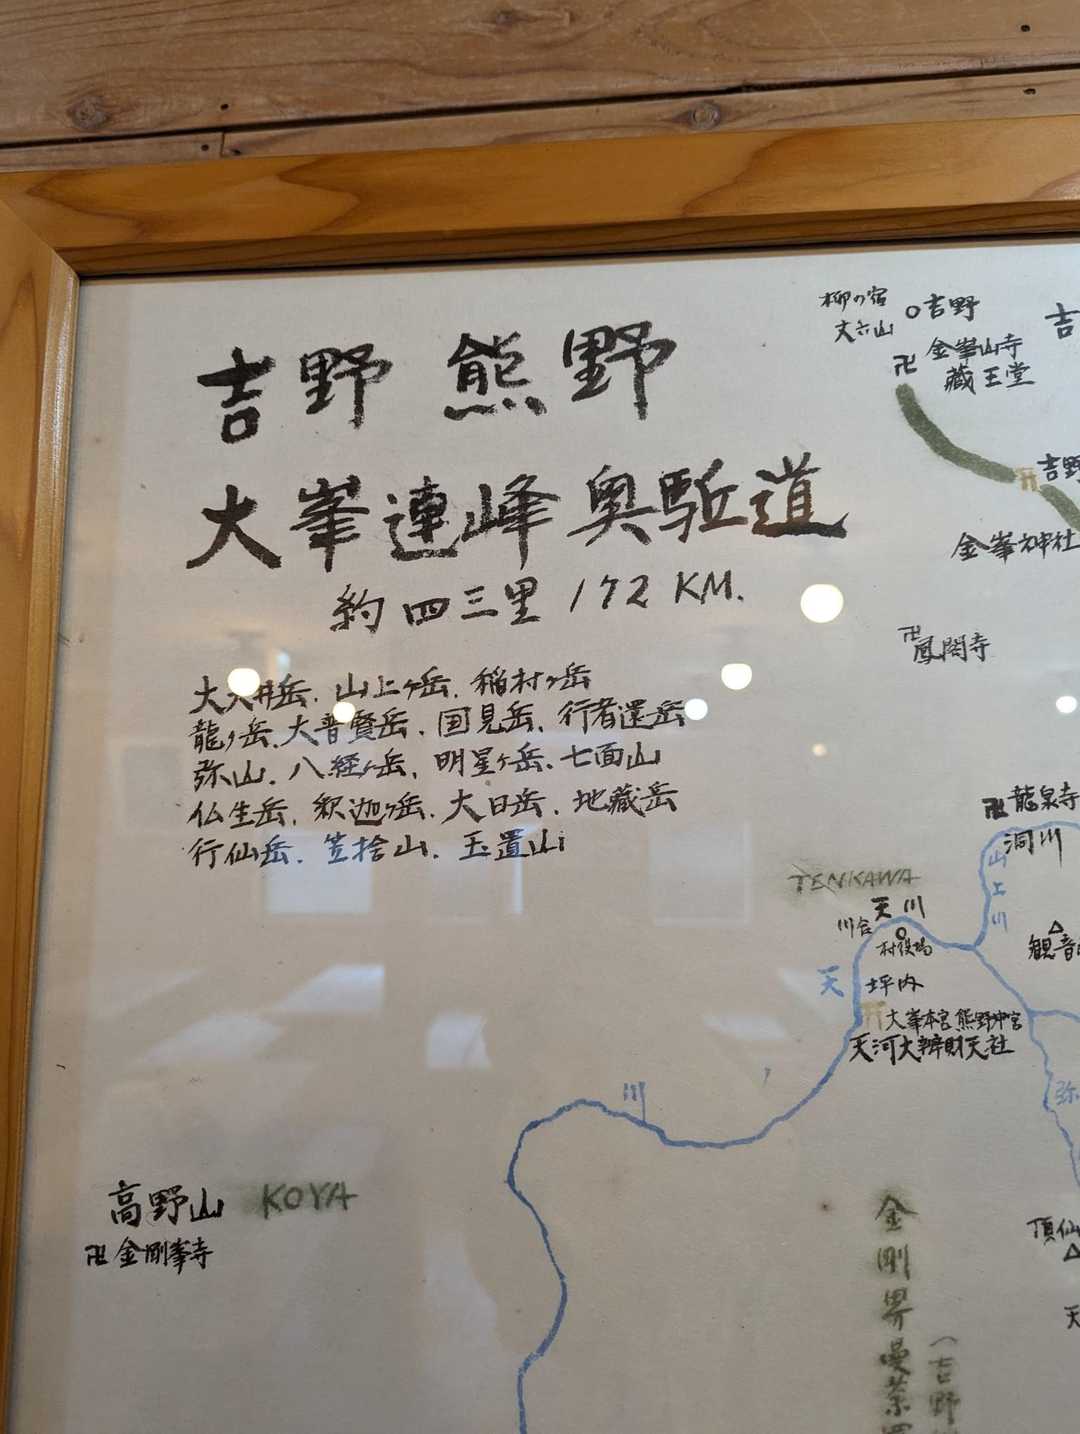 吉野 熊野
大峯連峰 奥駈道
約四三里 172 KM.
大天井岳. 山上ヶ岳. 稲村ヶ岳
龍ヶ岳. 大普賢岳. 国見岳. 行者還岳
弥山. 八経ヶ岳. 明星ヶ岳. 七面山
仏生岳. 釈迦ヶ岳. 大日岳. 地蔵岳
行仙岳. 笠捨山. 玉置山
柳の宿
丈六山
吉野
卍 金峯山寺
蔵王堂
吉
吉野
金峯神社
卍
鳳閣寺
卍 龍泉寺
洞川
山上川
TENKAWA
天川
川合
村役場
天
坪内
大峯本宮 熊野中宮
天河大辨財天社
川
弥
高野山 KOYA
卍 金剛峯寺
頂仙
天
金剛界曼荼
(吉野